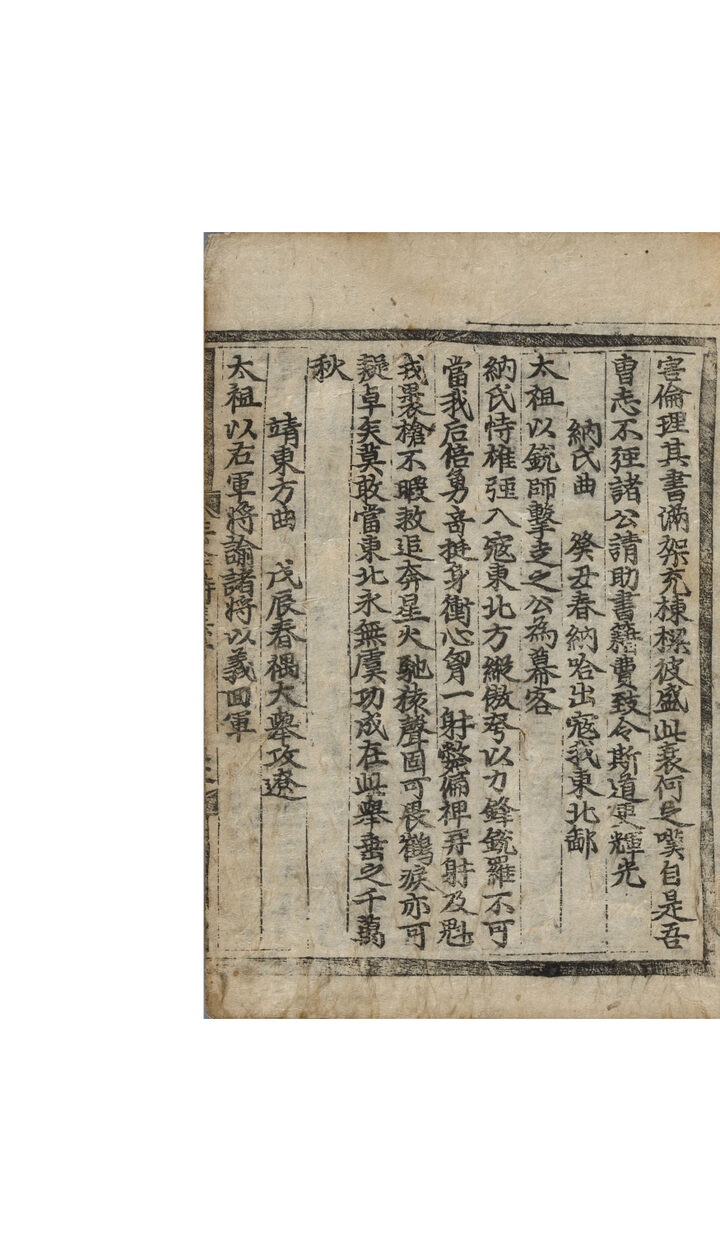 害倫理其書滿架充棟樑彼盛此衰何足嘆自是吾
曺志不强諸公請助書籍費致令斯道更輝光
納氏曲 癸丑春納哈出寇我東北鄙
太祖以銳師擊走之公爲幕客
納氏恃雄强入寇東北方縱傲夸以力鋒銳羅不可
當我后倍勇奇挺身衝心胷一射斃偏裨再射及魁
戎裹槍不暇救追奔星火馳猿聲固可畏鶴淚亦可
疑卓矣莫敢當東北永無虞功成在此擧垂之千萬
秋
靖東方曲 戊辰春禑大擧攻遼
太祖以右軍將諭諸將以義回軍